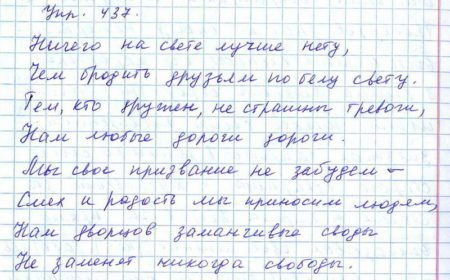 Упр. 437.
Ничего на свете лучше нету,
Чем бродить друзьям по белу свету.
Тем, кто дружен, не страшны тревоги,
Нам любые дороги дороги.
Мы свое призвание не забудем –
Смех и радость мы приносим людям,
Нам дворцов заманчивые своды
Не заменят никогда свободы.